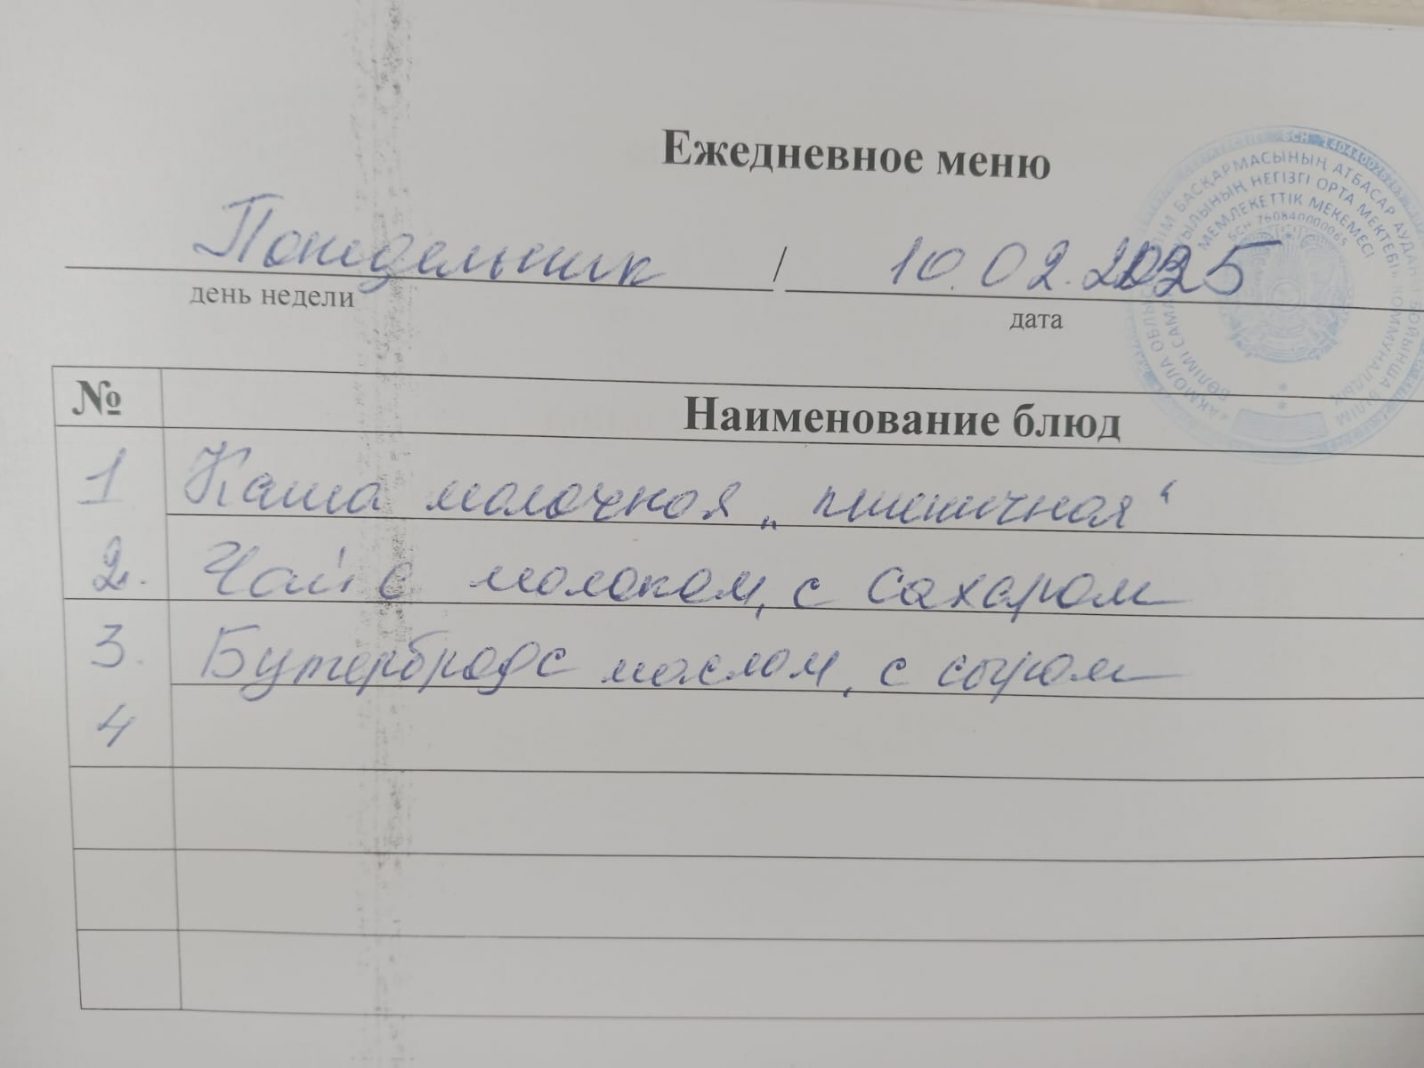 Ежедневное меню
Понедельник / 10.02.2025
день недели
дата
№ Наименование блюд
1 Каша молочная „пшеничная“
2. Чай с молоком, с сахаром
3. Бутерброд с маслом, с сыром
4
БАСҚАРМАСЫНЫҢ АТБАСАР АУДАНЫ БОЙЫНША БІЛІМ
НЕГІЗГІ ОРТА МЕКТЕБІ» КОММУНАЛДЫҚ
МЕМЛЕКЕТТІК МЕКЕМЕСІ
БСН 760840000065